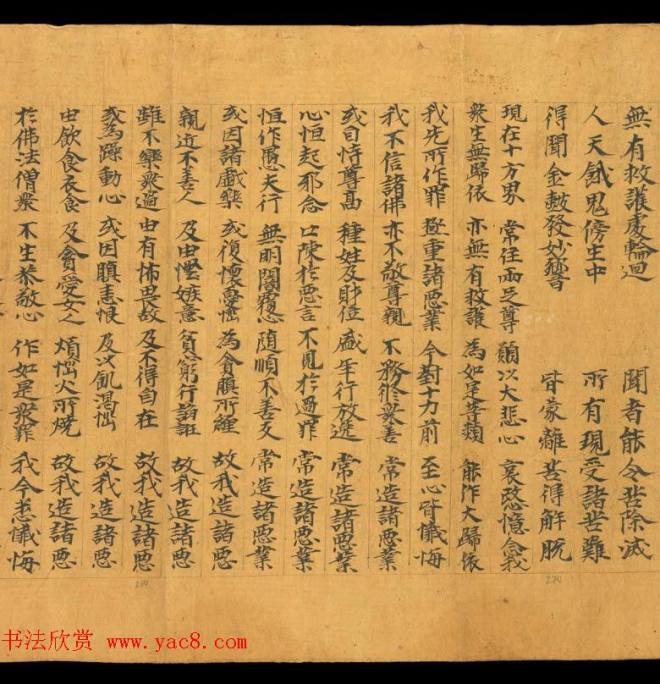 無有救護處輪迴 聞者能令苦除滅
人天餓鬼傍生中 所有現受諸苦難
得聞金鼓發妙響 皆蒙離苦得解脫
現在十方界 常住兩足尊 願以大悲心 哀愍憶念我
衆生無歸依 亦無有救護 為如是等類 能作大歸依
我先所作罪 極重諸惡業 今對十力前 至心皆懺悔
我不信諸佛 亦不敬尊親 不務修衆善 常造諸惡業
或自恃尊高 種姓及財位 盛年行放逸 常造諸惡業
心恒起邪念 口陳於惡言 不見於過罪 常造諸惡業
恒作愚夫行 無明闇覆心 隨順不善友 常造諸惡業
或因諸戲樂 或復懷憂惱 為貪瞋所纏 故我造諸惡
親近不善人 及由慳嫉意 貧窮行諂誑 故我造諸惡
雖不樂衆過 由有怖畏故 及不得自在 故我造諸惡
或為躁動心 或因瞋恚恨 及以飢渴惱 故我造諸惡
由飲食衣食 及貪愛女人 煩惱火所燒 故我造諸惡
於佛法僧衆 不生恭敬心 作如是衆罪 我今悉懺悔
书法欣赏 www.yac8.com